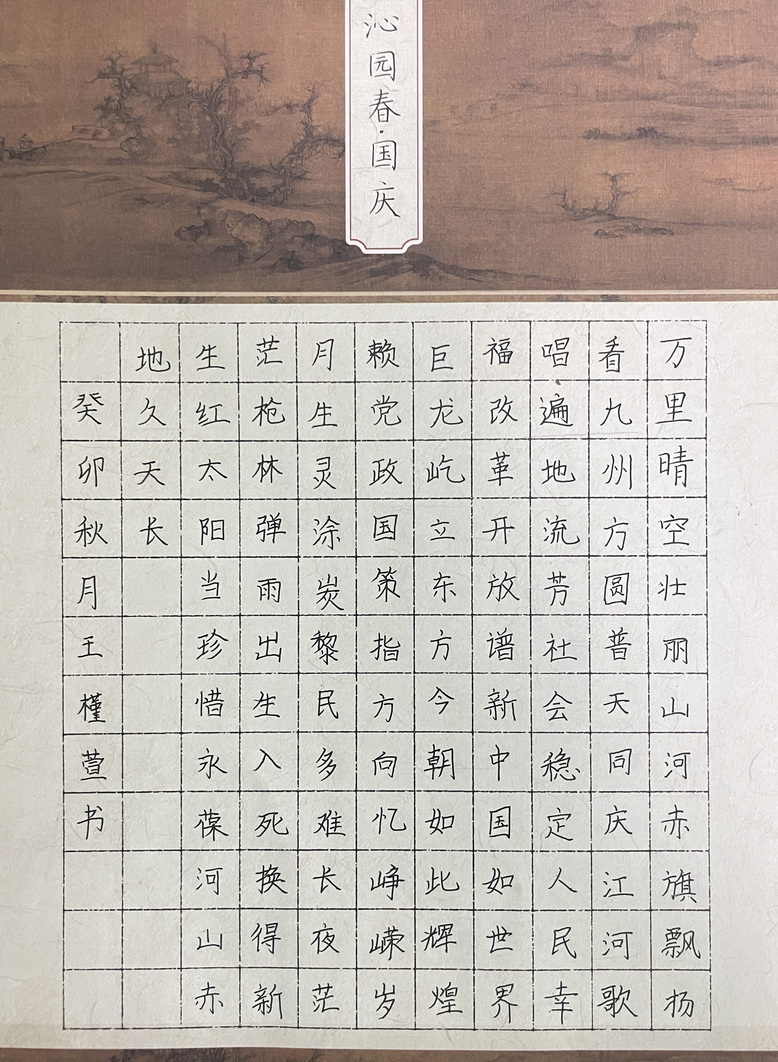 沁园春·国庆
万里晴空壮丽山河赤旗飘扬
看九州方圆普天同庆江河歌
唱遍地流芳社会稳定人民幸
福改革开放谱新中国如世界
巨龙屹立东方今朝如此辉煌
赖党政国策指方向忆峥嵘岁
月生灵涂炭黎民多难长夜茫
茫枪林弹雨出生入死换得新
生红太阳当珍惜永葆河山赤
地久天长
癸卯秋月王槿萱书